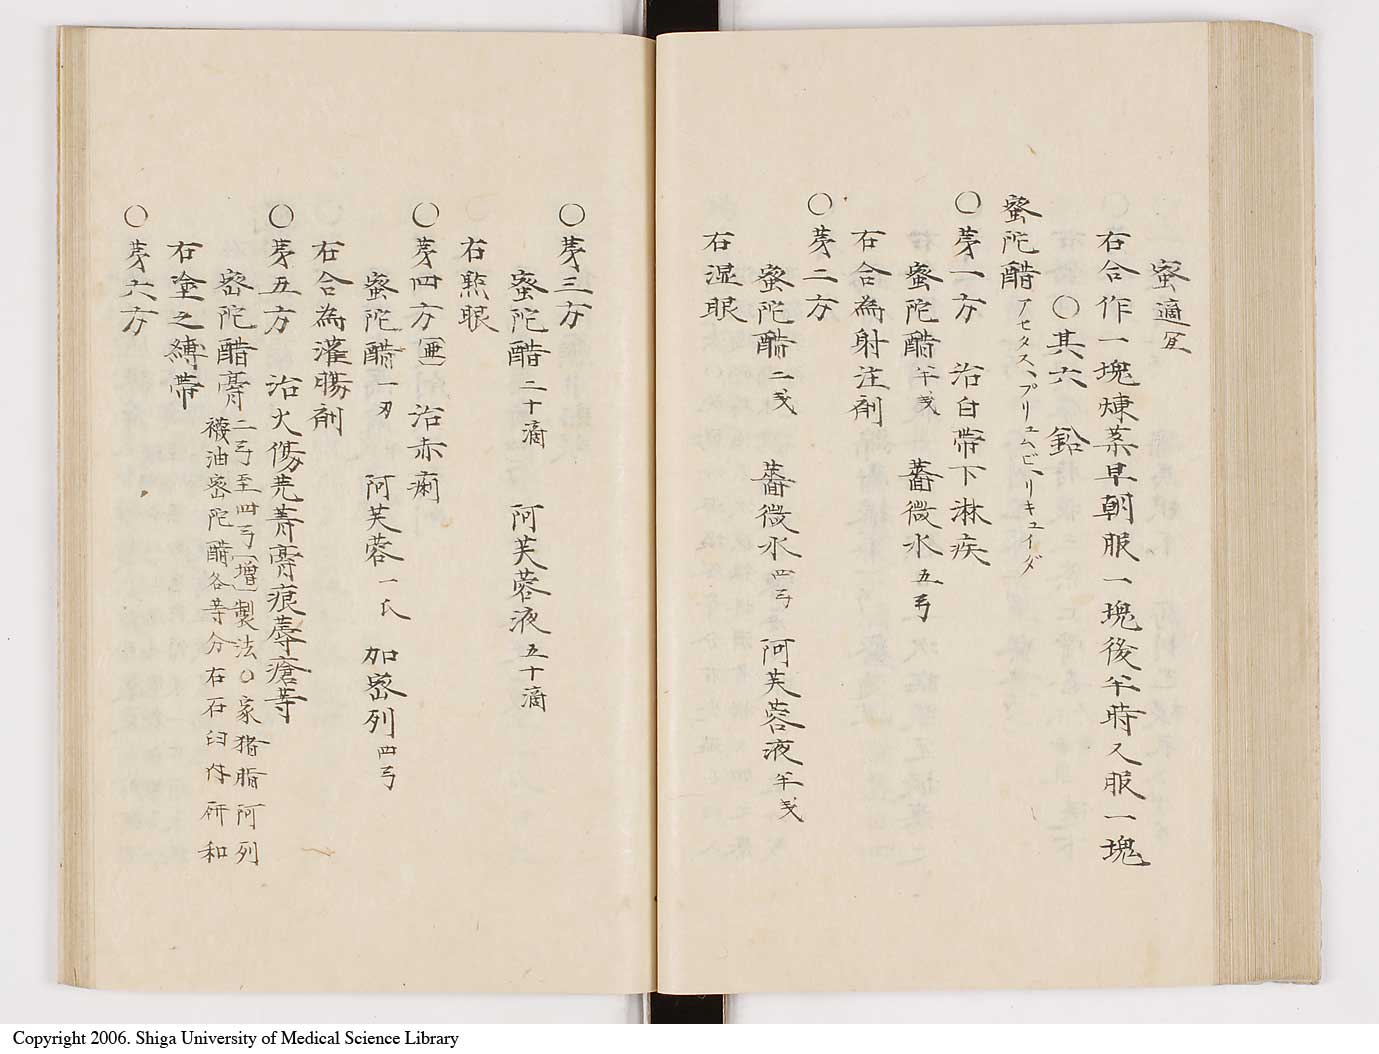 蜜適宜
右合作一塊煉薬早朝服一塊後半時又服一塊
○其六 鉛
蜜陀醋 アセタス、プリュムビ、リキュイダ
○第一方 治白帯下淋疾
蜜陀醋半戔 薔薇水五弓
右合為射注剤
○第二方
蜜陀醋二戔 薔薇水四弓 阿芙蓉液半戔
右湿眼
○第三方
蜜陀醋二十滴 阿芙蓉液五十滴
右點眼
○第四方 治赤痢
蜜陀醋一刃 阿芙蓉一氏 加密列四弓
右合為灌腸剤
○第五方 治火傷芫菁膏痕蓐瘡等
密陀醋膏二弓至四弓[増]製法○家猪脂阿列
襪油密陀醋各等分右石臼研和
右塗之縛帯
○第六方
Copyright 2006. Shiga University of Medical Science Library